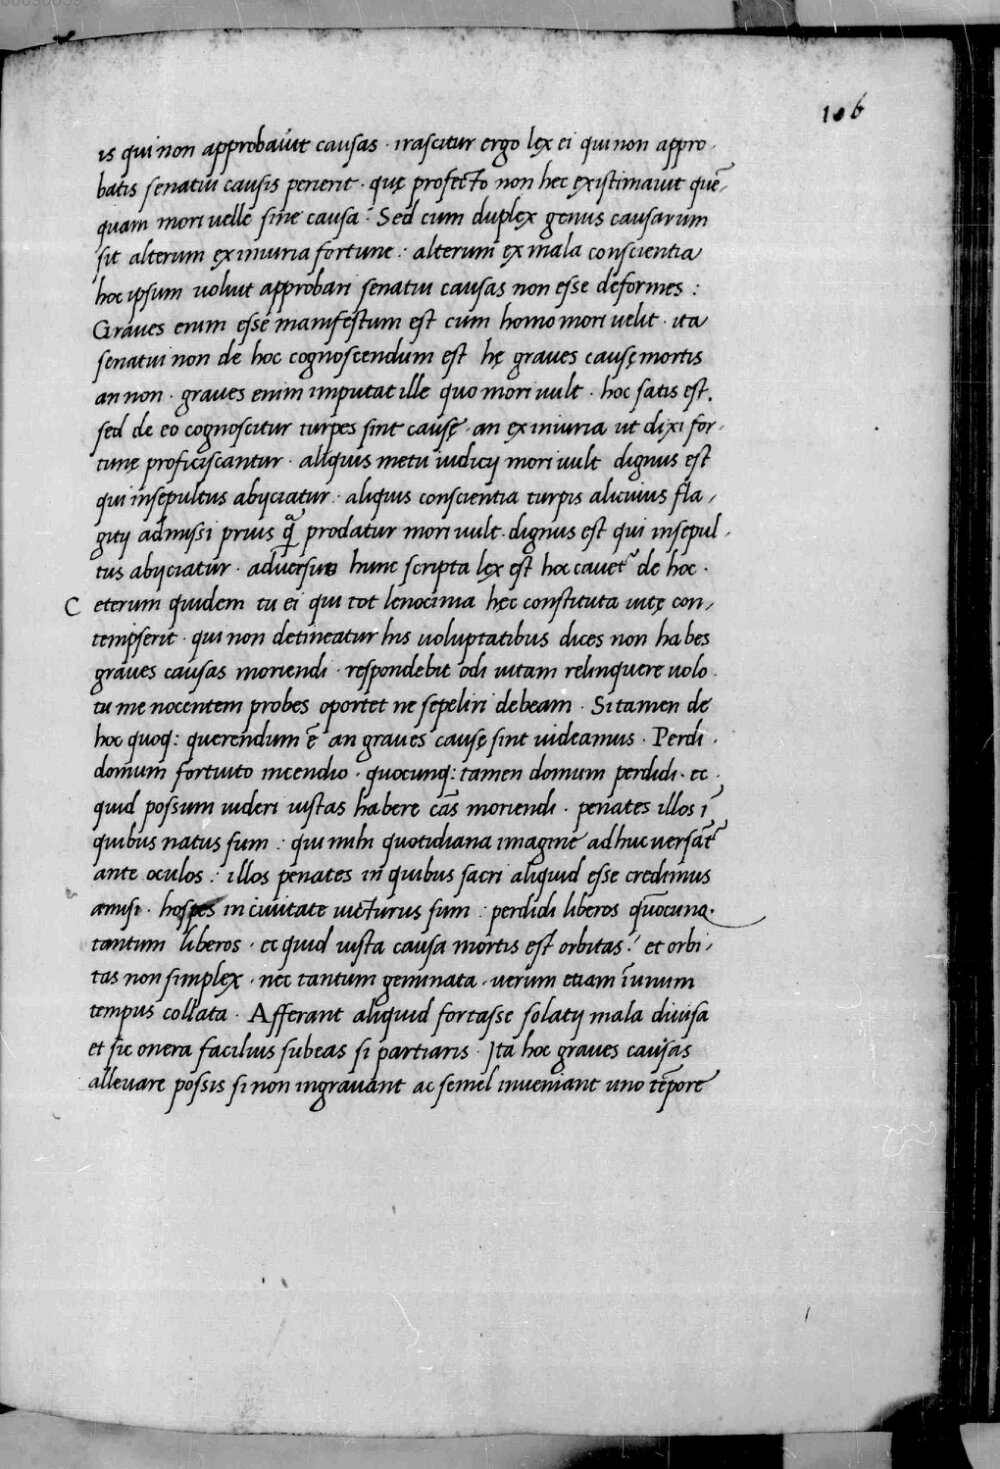 106
is qui non approbavit causas · irascitur ergo lex ei qui non appro ·
batis senatui causis perierit · quę profecto non hec existimavit quē-
quam mori velle sine causa · Sed cum duplex genus causarum
sit alterum ex iniuria fortune : alterum ex mala conscientia
hoc ipsum voluit approbari senatui causas non esse deformes :
Graves enim esse manifestum est cum homo mori velit · ita
senatui non de hoc cognoscendum est hę graves causę mortis
an non · graves enim imputat ille quo mori vult · hoc satis est.
sed de eo cognoscitur turpes sint causę · an ex iniuria ut dixi for-
tunę proficiscantur · aliquis metu iudicij mori vult dignus est
qui insepultus abijciatur : aliquis conscientia turpis alicuius fla-
gitij admissi prius q̃ prodatur mori vult · dignus est qui insepul-
tus abijciatur · adversus hunc scripta lex est hoc cavet̃ de hoc ·
C eterum quidem tu ei qui tot lenocinia hęc constituta vitę con-
tempserit · qui non detineatur his voluptatibus dices non habes
graves causas moriendi · respondebit odi vitam relinquere volo ·
tu me nocentem probes oportet ne sepeliri debeam · Si tamen de
hoc quoq: querendum ē an graves causę sint videamus · Perdi ·
domum fortuito incendio · quocunq: tamen domum perdidi · ec ·
quid possum videri iustas habere cās moriendi · penates illos ī
quibus natus sum : qui mihi quotidiana imagine adhuc versāt̃
ante oculos : illos penates in quibus sacri aliquid esse credimus
amisi · hospes in civitate victurus sum : perdidi liberos quocunq·
tantum liberos · ec quid iusta causa mortis est orbitas ? et orbi-
tas non simplex · nec tantum geminata · verum etiam ī unum
tempus collata · Afferant aliquid fortasse solatij mala divisa
et sic onera facilius subeas si partiaris · Ita hoc graves causas
allevare possis si non ingravant ac semel inveniant uno tēpore